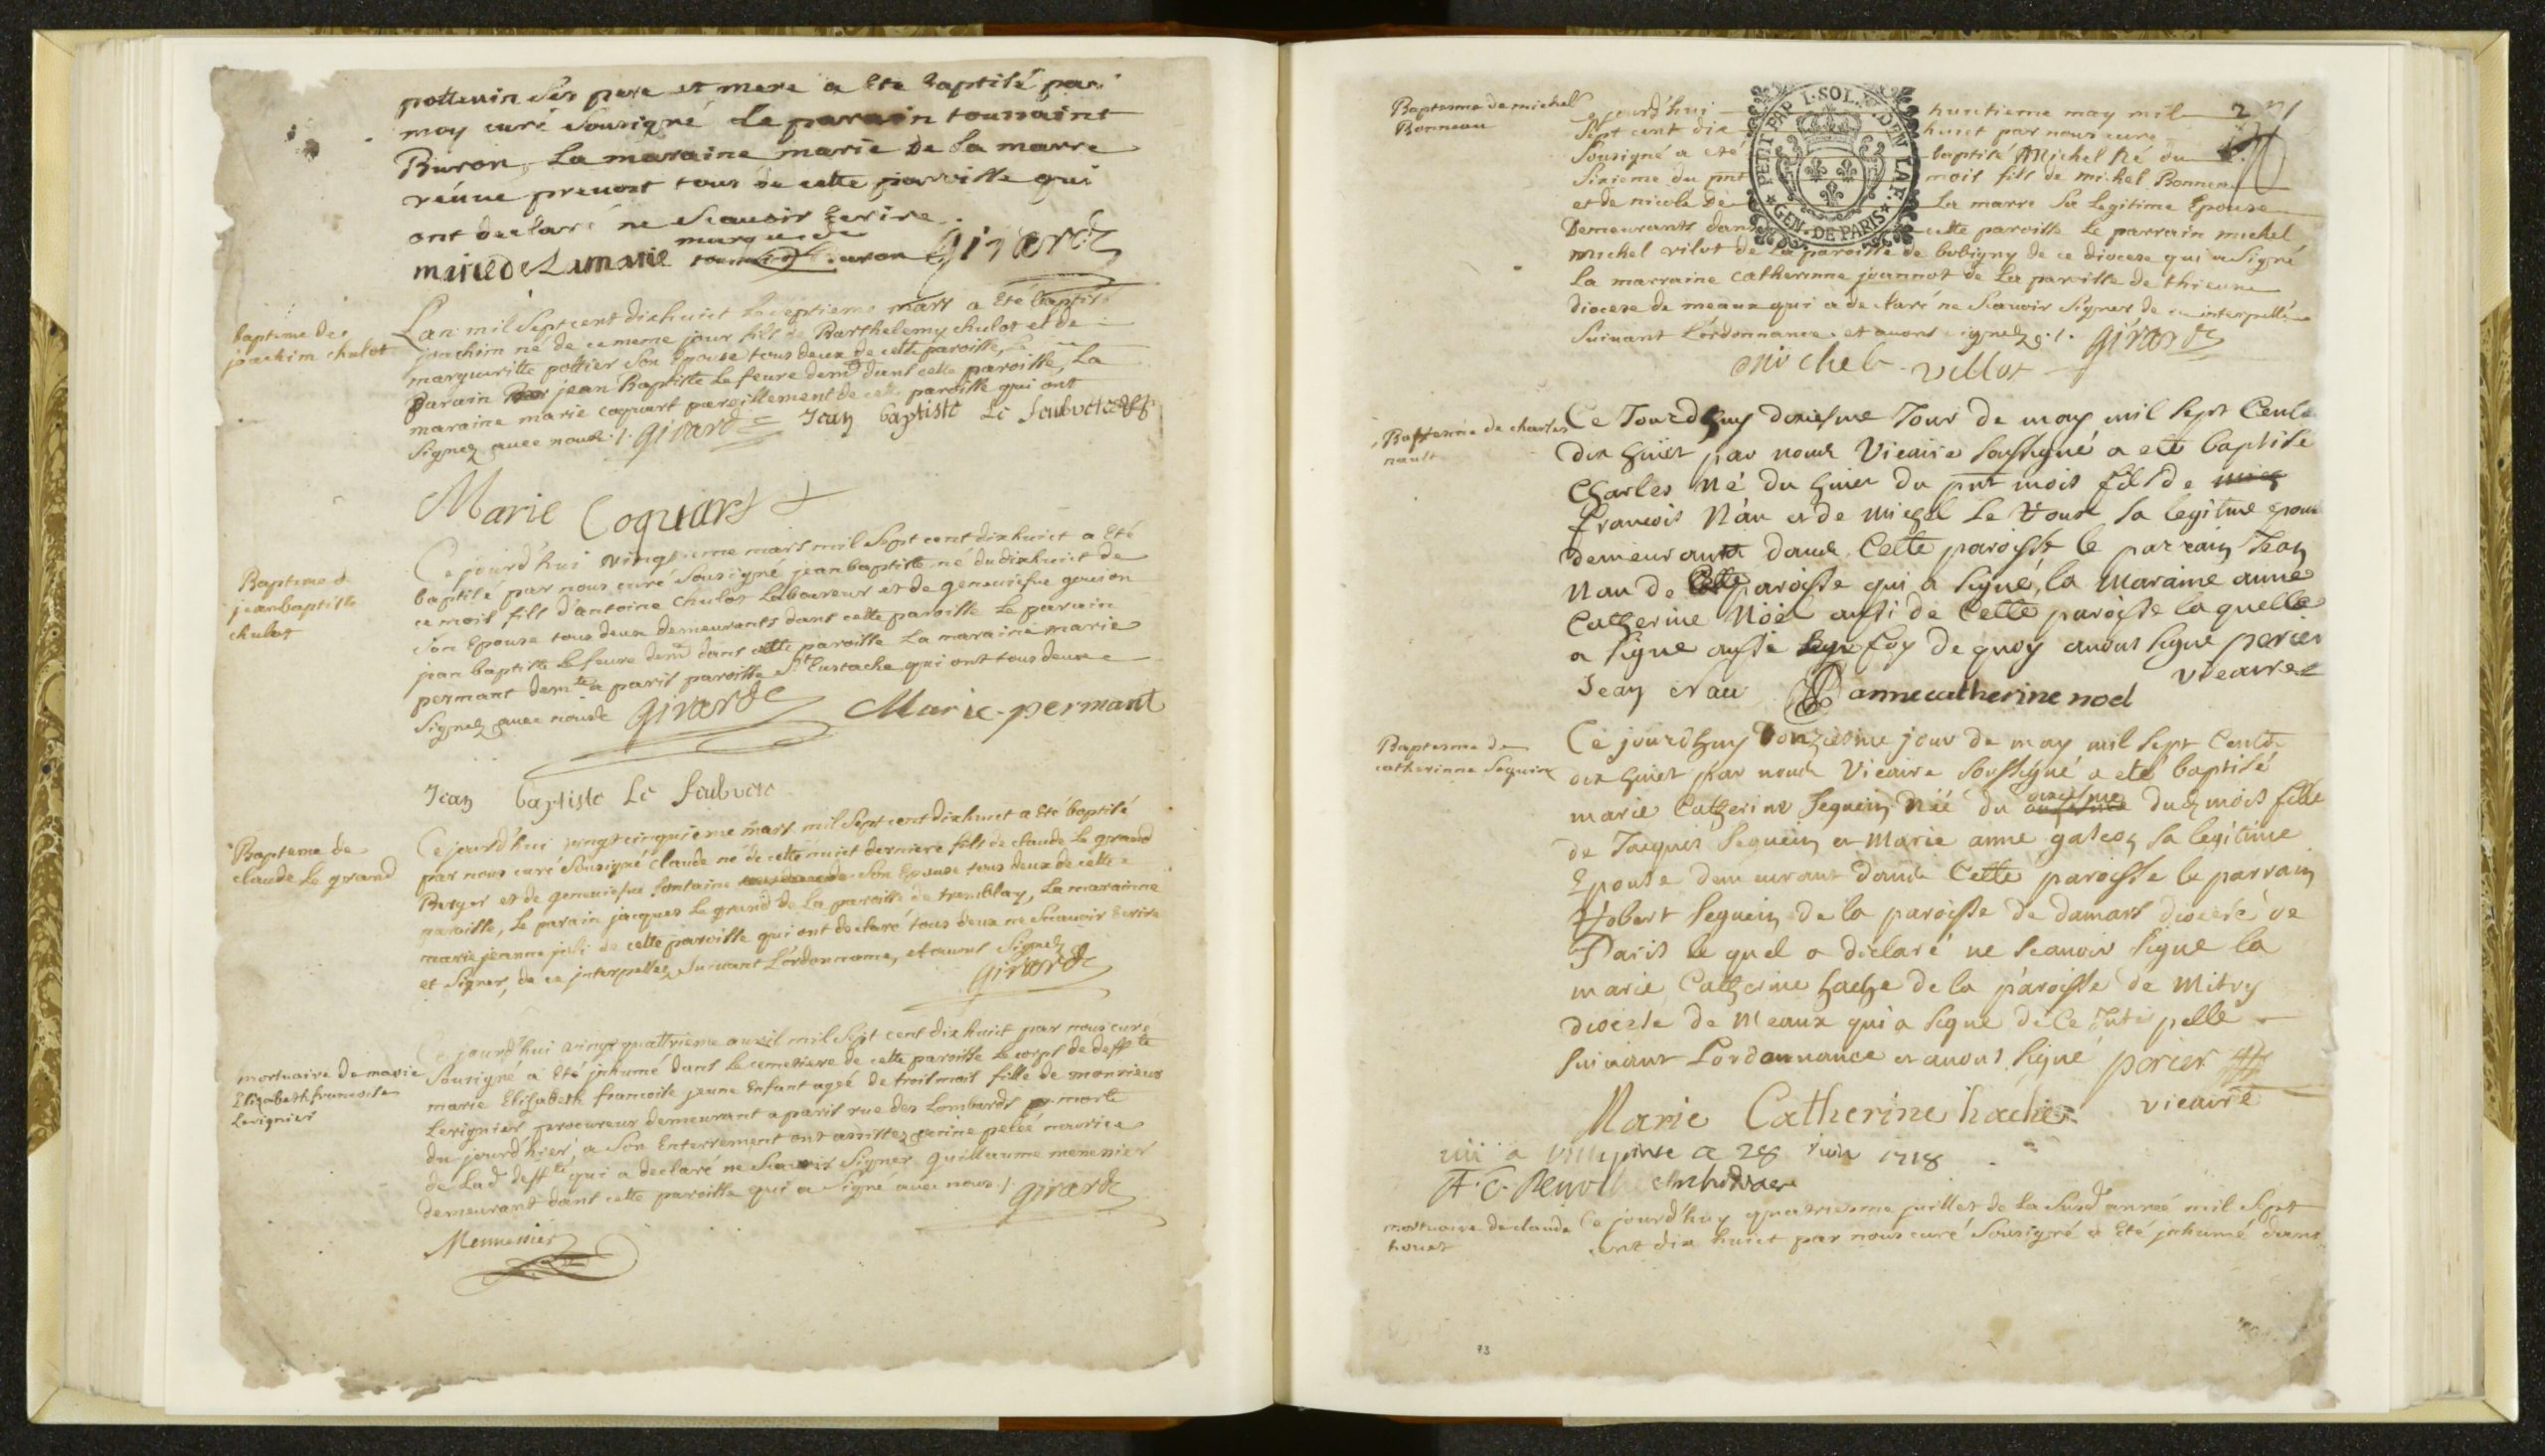 pottevin ses pere et mere a Ete baptisé par
moy curé sousigné Le parain toussaint
Buron, La maraine marie De La marre
veuve prevost tous de cette paroisse qui
ont declaré ne scauoir Ecrire
marque de
marie de Lamarre buron Girard
bapteme de
joachim chulot
L'an mil sept cent dixhuict mars a Eté baptisé
joachim né de ce meme jour fils de Barthelemy chulot et de
margueritte pottier son Epouse tous deux de cette paroisse, Le
parain jean Baptiste Le feure demt dans cette paroisse, La
maraine marie coquart pareillement de cette paroisse qui ont
signez avec nous ./. Girard Jean baptiste Le feubvre
Marie Coquart
Bapteme de
jean baptiste
chulot
Ce jourd'hui vingtieme mars mil sept cent dixhuict a Eté
baptisé par nous curé sousigné jean baptiste né du dixhuict de
ce mois fils d'antoine chulot Laboureur et de geneuiefue gouion
son Epouse tous deux demeurants dans cette paroisse Le parain
jean baptiste Le feure demt dans cette paroisse La maraine marie
permant demte a paris paroisse St Eustache qui ont tous deux
signez avec nous Girard Marie permant
Jean baptiste Le feubvre
Bapteme de
claude Le grand
Ce jourd'hui vingt cinquieme mars mil sept cent dixhuict a Eté baptisé
par nous curé sousigné claude né de cette nuict derniere fils de claude Le grand
Berger et de geneuiefue fontaine son Epouse tous deux de cette
paroisse, Le parain jacques Le grand de La paroisse de tremblay, La marainne
marie jeanne de cette paroisse qui ont declaré tous deux ne scauoir Ecrire
et signer, de ce interpellez suivant L'ordonnance, et auons signez
Girard
mortuaire de marie
Elizabeth francoise
Levignier
Ce jourd'hui vingt quattrieme auril mil sept cent dixhuict par nous curé
sousigné a Eté inhumé dans Le cemetiere de cette paroisse Le corps de deffte
marie Elisabeth francoise jeune Enfant agée de trois mois fille de monsieur
Levignier procureur demeurant a paris rue des Lombards morte
du jourd'hier, a son Enterrement ont assistez nourice
de Lad deffte qui a declaré ne scauoir signer guillaume mennesier
demeurant dans cette paroisse qui a signé avec nous ./. Girard
Mennesier
Baptesme de michel
Bonneau
PETIT PAP I. SOL. GEN. DE PARIS
Ce jourd'hui huictieme may mil
sept cent dix huict par nous curé
sousigné a eté baptisé Michel Né du
sixieme du pnt mois fils de michel Bonneau
et de nicole De La marre sa Legitime Epouse
Demeurants dans cette paroisse Le parrain michel
michel vilot de La paroisse de bobigny de ce diocese qui a signé
La marraine catherinne joannot de La paroisse de thieux
diocese de meaux qui a declaré ne scauoir signer de ce interpellée
suivant L'ordonnance et auons signez ./. Girard
michel villot
Baptesme de charles
nault
Ce Jourdhuy Jour de may mil sept Cents
dix huict par nous Vicaire soussigné a eté baptisé
Charles Né du huict du pnt mois fils de
francois Nau et de Le sa legitime epouse
demeurants dans Cette paroisse le parrain Jean
Nau de Cette paroisse qui a signé, la Maraine anne
Catherine Noël aussi de Cette paroisse laquelle
a signé aussi en foy de quoy auons signé perier
vicaire
Jean Nau anne catherine noel
Baptesme de
catherinne seguin
Ce jourdhuy jour de may mil sept Cents
dix huict par nous Vicaire soussigné a eté baptisé
marie Catherine seguein Née du dud mois fille
de Jacques seguein et Marie anne gascon sa legitime
Epouse demeurant dans Cette paroisse le parrain
Robert seguein de la paroisse de damart diocese de
Paris le quel a déclaré ne scauoir signé la
marie Catherine hache de la paroisse de Mitry
diocese de Meaux qui a signé de Ce Interpellé
suivant L'ordonnance et auons signé perier
Marie Catherine hache vicaire
a 28 juin 1718
mortuaire de claude
houet
Ce jourd'huy quatriesme juillet de La susd année mil sept
cent dix huict par nous curé sousigné a Eté inhumé dans
73